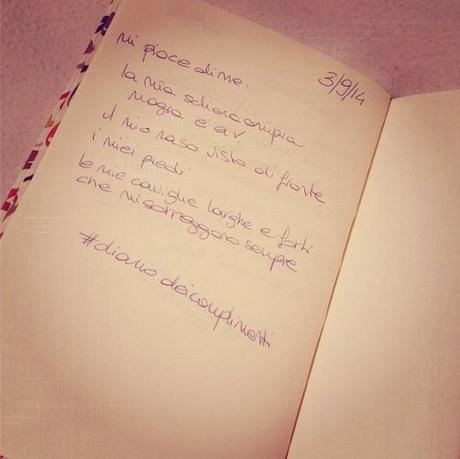 3/9/14
Mi piace di me:
la mia schiena ampia
magra e a V
il mio naso visto di fronte
i miei piedi
le mie caviglie larghe e forti
che mi sorreggono sempre
#diario deicomplimenti